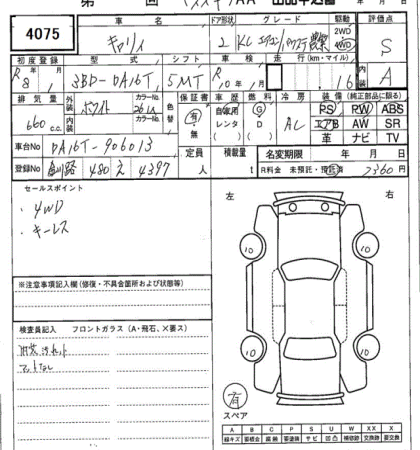 4075
車名 ドア形状 グレード 駆動 評価点
キャリィ 2 KC エアコン パワステ 農繁 2WD 4WD S
初度登録 型式 シフト 車検 走行(km・マイル) 内装
R8/1 3BD-DA16T 5MT R10年 月 16 A
排気量 外装 カラーNo. 色替 保証書 車歴 燃料 冷房 装備(純正部品に限る)
660cc ホワイト 26U 有・無 自家用 G AC PS PW ABS
内装 カラーNo. レンタ( )( ) D エアB AW SR
革 ナビ TV
車台No DA16T-906013 定員 積載量 名変期限 年 月 日
登録No 480 え 4397 人 t R料金 未預託・預託済 2360円
セールスポイント
・4WD
・キーレス
左 右
10 10
10 10
※注意事項記入欄(修復・不具合箇所および状態等)
検査員記入 フロントガラス(A・飛石、×要ス)
内装汚れ
マットなし
有
スペア
A B C P S U W X XX
線キズ 要板金 腐蝕 要塗装 サビ 凹凸 補修跡 要交換 交換跡